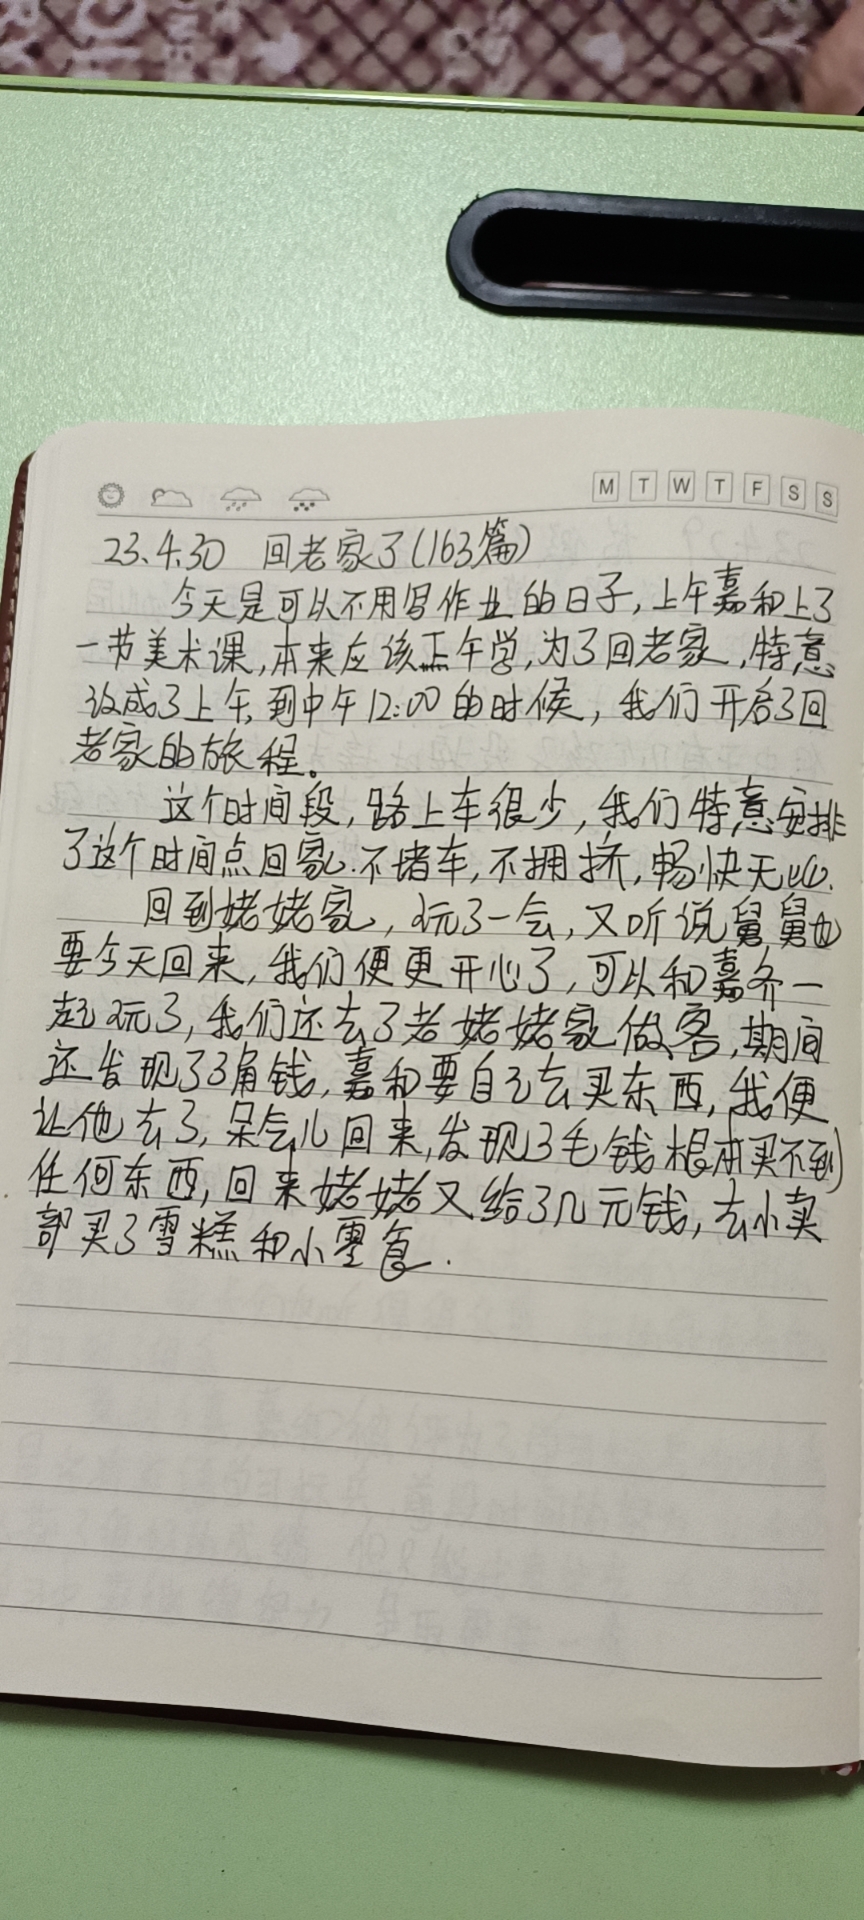 M T W T F S S
23.4.30 回老家了(163篇)
今天是可以不用写作业的日子,上午嘉和上了
一节美术课,本来应该正午学,为了回老家,特意
改成了上午,到中午12:00的时候,我们开启了回
老家的旅程。
这个时间段,路上车很少,我们特意安排
了这个时间点回家.不堵车,不拥挤,畅快无比.
回到姥姥家,玩了一会,又听说舅舅也
要今天回来,我们便更开心了,可以和嘉齐一
起玩了,我们还去了老姥姥家做客,期间
还发现了3角钱,嘉和要自己去买东西,我便
让他去了,呆会儿回来,发现3毛钱根本买不到
任何东西,回来姥姥又给了几元钱,去小卖
部买了雪糕和小零食.